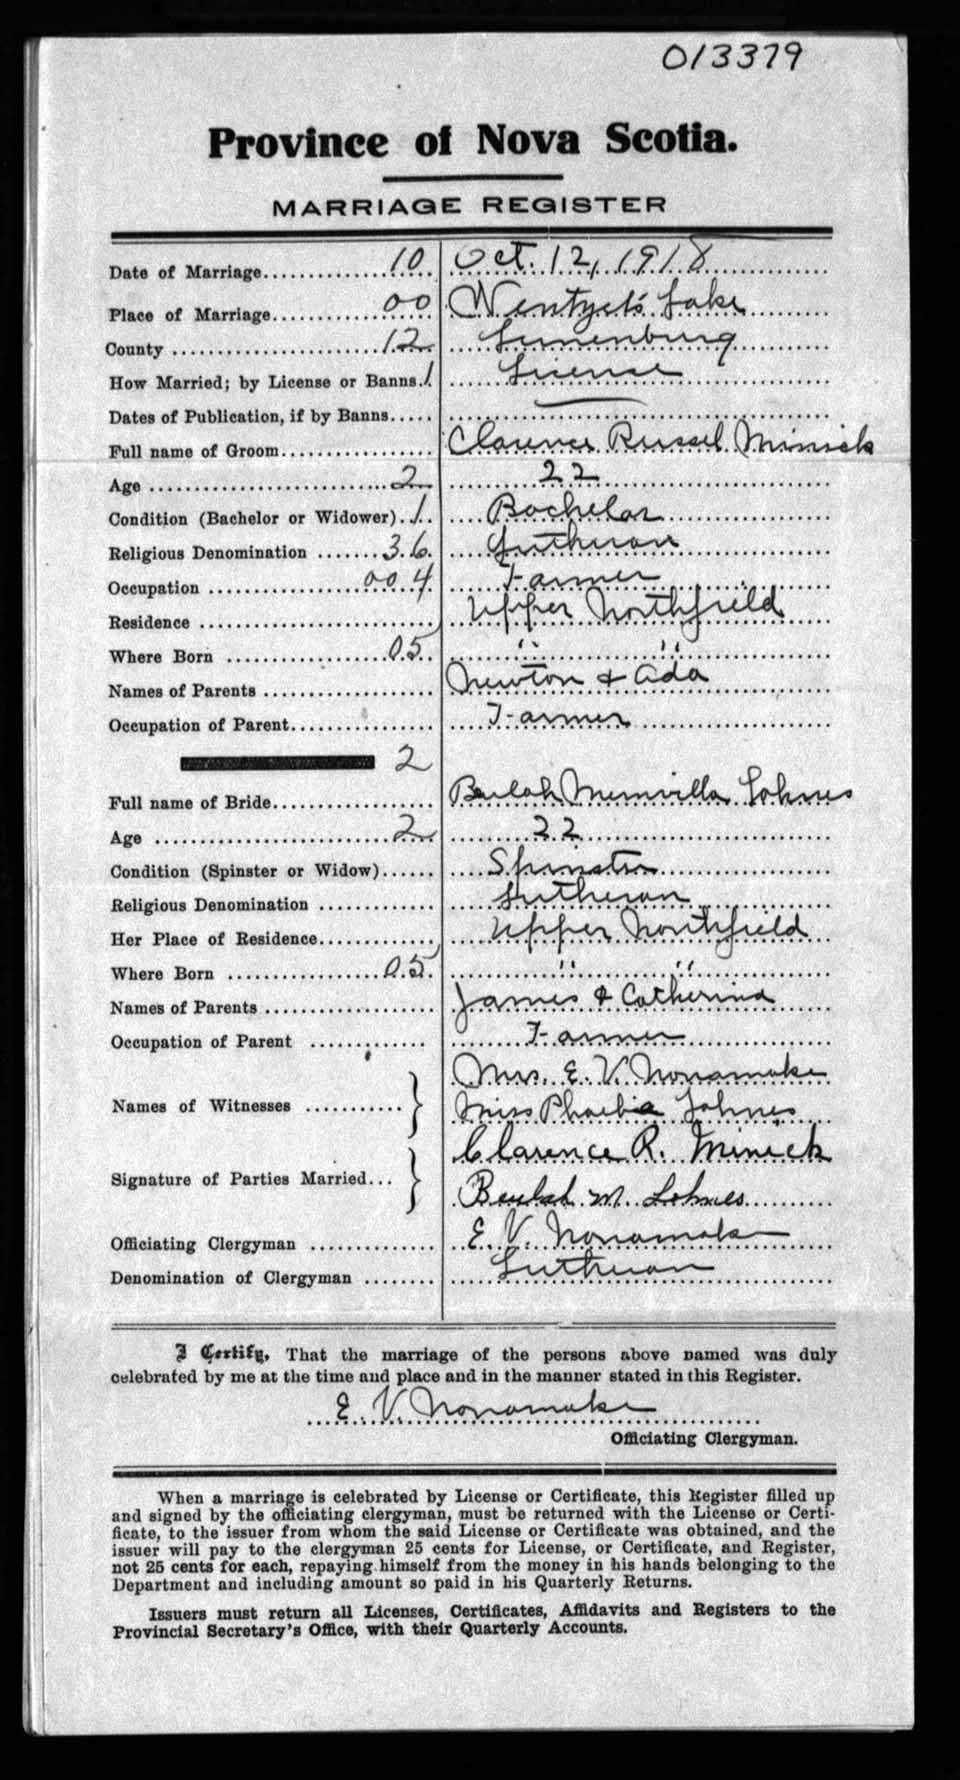 013379
Province of Nova Scotia.
MARRIAGE REGISTER
Date of Marriage 10 Oct. 12, 1918
Place of Marriage 00 Wentzel's Lake
County 12 Lunenburg
How Married; by License or Banns. 1 License
Dates of Publication, if by Banns
Full name of Groom Clarence Russel Minick
Age 2 22
Condition (Bachelor or Widower) 1 Bachelor
Religious Denomination 36 Lutheran
Occupation 00 4 Farmer
Residence Upper Northfield
Where Born 05 " "
Names of Parents Newton & Ada
Occupation of Parent Farmer
2
Full name of Bride Beulah Lohnes
Age 2 22
Condition (Spinster or Widow) Spinster
Religious Denomination Lutheran
Her Place of Residence Upper Northfield
Where Born 05 " "
Names of Parents James & Catherina
Occupation of Parent Farmer
Mrs. E. V. Nonamaker
Names of Witnesses
Miss Phoebia Lohnes
Clarence R. Minick
Signature of Parties Married
Beulah M. Lohnes
Officiating Clergyman E. V. Nonamaker
Denomination of Clergyman Lutheran
I Certify, That the marriage of the persons above named was duly
celebrated by me at the time and place and in the manner stated in this Register.
E. V. Nonamaker
Officiating Clergyman.
When a marriage is celebrated by License or Certificate, this Register filled up
and signed by the officiating clergyman, must be returned with the License or Certi-
ficate, to the issuer from whom the said License or Certificate was obtained, and the
issuer will pay to the clergyman 25 cents for License, or Certificate, and Register,
not 25 cents for each, repaying himself from the money in his hands belonging to the
Department and including amount so paid in his Quarterly Returns.
Issuers must return all Licenses, Certificates, Affidavits and Registers to the
Provincial Secretary's Office, with their Quarterly Accounts.